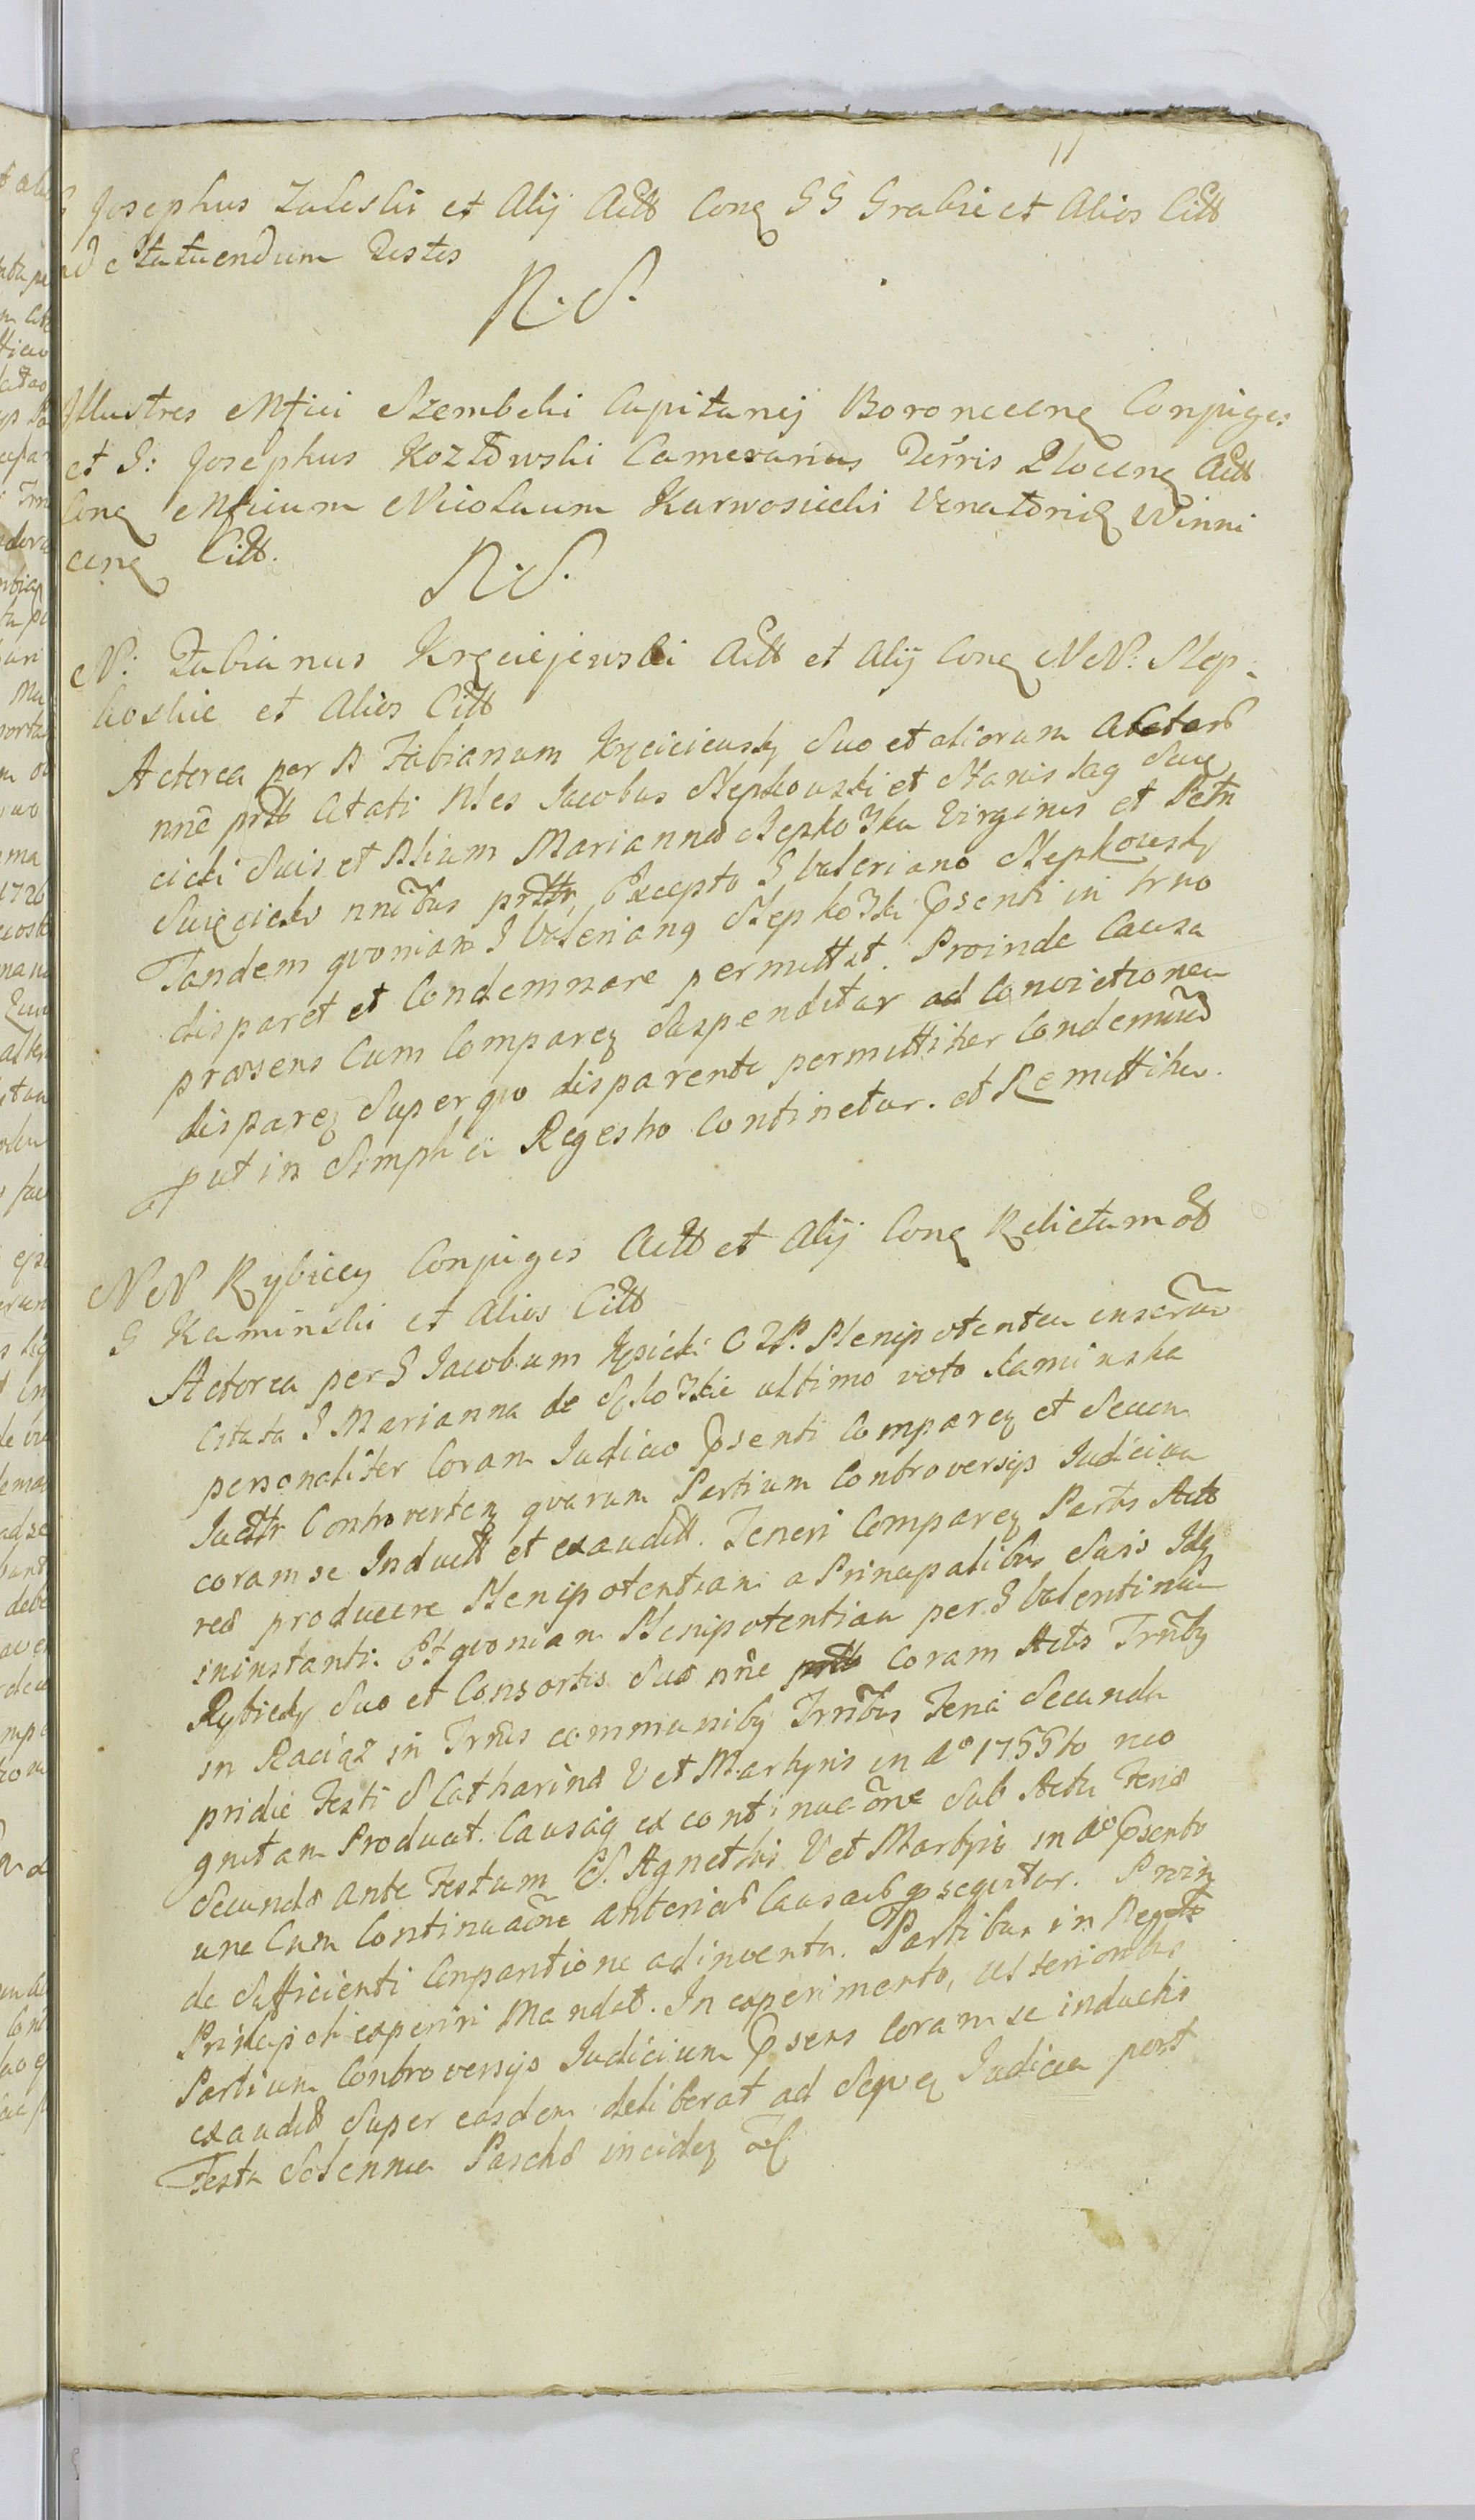 11
G Josephus Zaleski et Alij Actt Conq GG Grabie et Alios Citt
ad Statuendum Testes
N. S.
Illustres Mfici Szembeki Capitanej Boroneceng Conjuges
et G: Josephus Kozłowski Camerarius Terris Ploceng Actt
Conq Mficum Nicolaum Karwosiecki Venatorid Winni
ceng Citt.
N. S.
N: Fabianus Krzciejewski Actt et Alij Conq NN: Slep-
koskie et Alios Citt
Actorea per N Fabianum Krzcieiewsky Suo et aliorum Actord
nne prtt Citati Nles Jacobus Slepkowski et Stanislag Swię
cicki Suis et Nlium Marianna Slepkoska Virginis et Petri
Swięcicki nnibus prttr, Excepto G Valeriano Slepkowsky
Tandem quoniam G Valeriang Slepkoski Psenti in trno
disparet et Condemnare permittit. Proinde Causa
praesens Cum Comparen Suspenditur ad Convictionem
disparen Super quo disparente permittitur Condemnad
put in Simplici Regestro Continetur. et Remittitur.
NN Rybiccy Conjuges Actt et Alij Conq Relictam ol
G Kaminski et Alios Citt
Actorea per G Jacobum Kęsicki C ZP. Plenipotentem
Citata G Marianna de Sękoskie ultimo voto Kaminska
personaliter Coram Judicio Psenti Comparen et Secum
Judttr Controverten quarum Partium Controversijs Judicium
coram se Inductt et exauditt. Teneri Comparen Partis Actt
red producere Plenipotentiam a Principalibus Suis Idq
ininstanti. Et quoniam Plenipotentiam per G Valentinum
Rybicky Suo et Consortis Sua nne prtt Coram Actis Trnlby
in Raciąż in Trnis communiby Trnlbus Feria Secunda
pridie Festi S Catharina V et Martyris in Ao 1755to reco
gnitam Produxit. Causaq ex continuaone Sub Actu Feria
Secunda ante Festum S. Agnethis V et Martyris in Ao Psenti
une Cum Continuaone anteriord Causard psequitur. Proin
de Sufficienti Conparitione adinventa. Partibus in Regsto
Principali experiri Mandat. In experimento, ulterioribus
Partium Controversijs Judicium Psens Coram se inductis
exauditt Super easdem deliberat ad Sequen Judicia post
Festa Solennia Pascha inciden